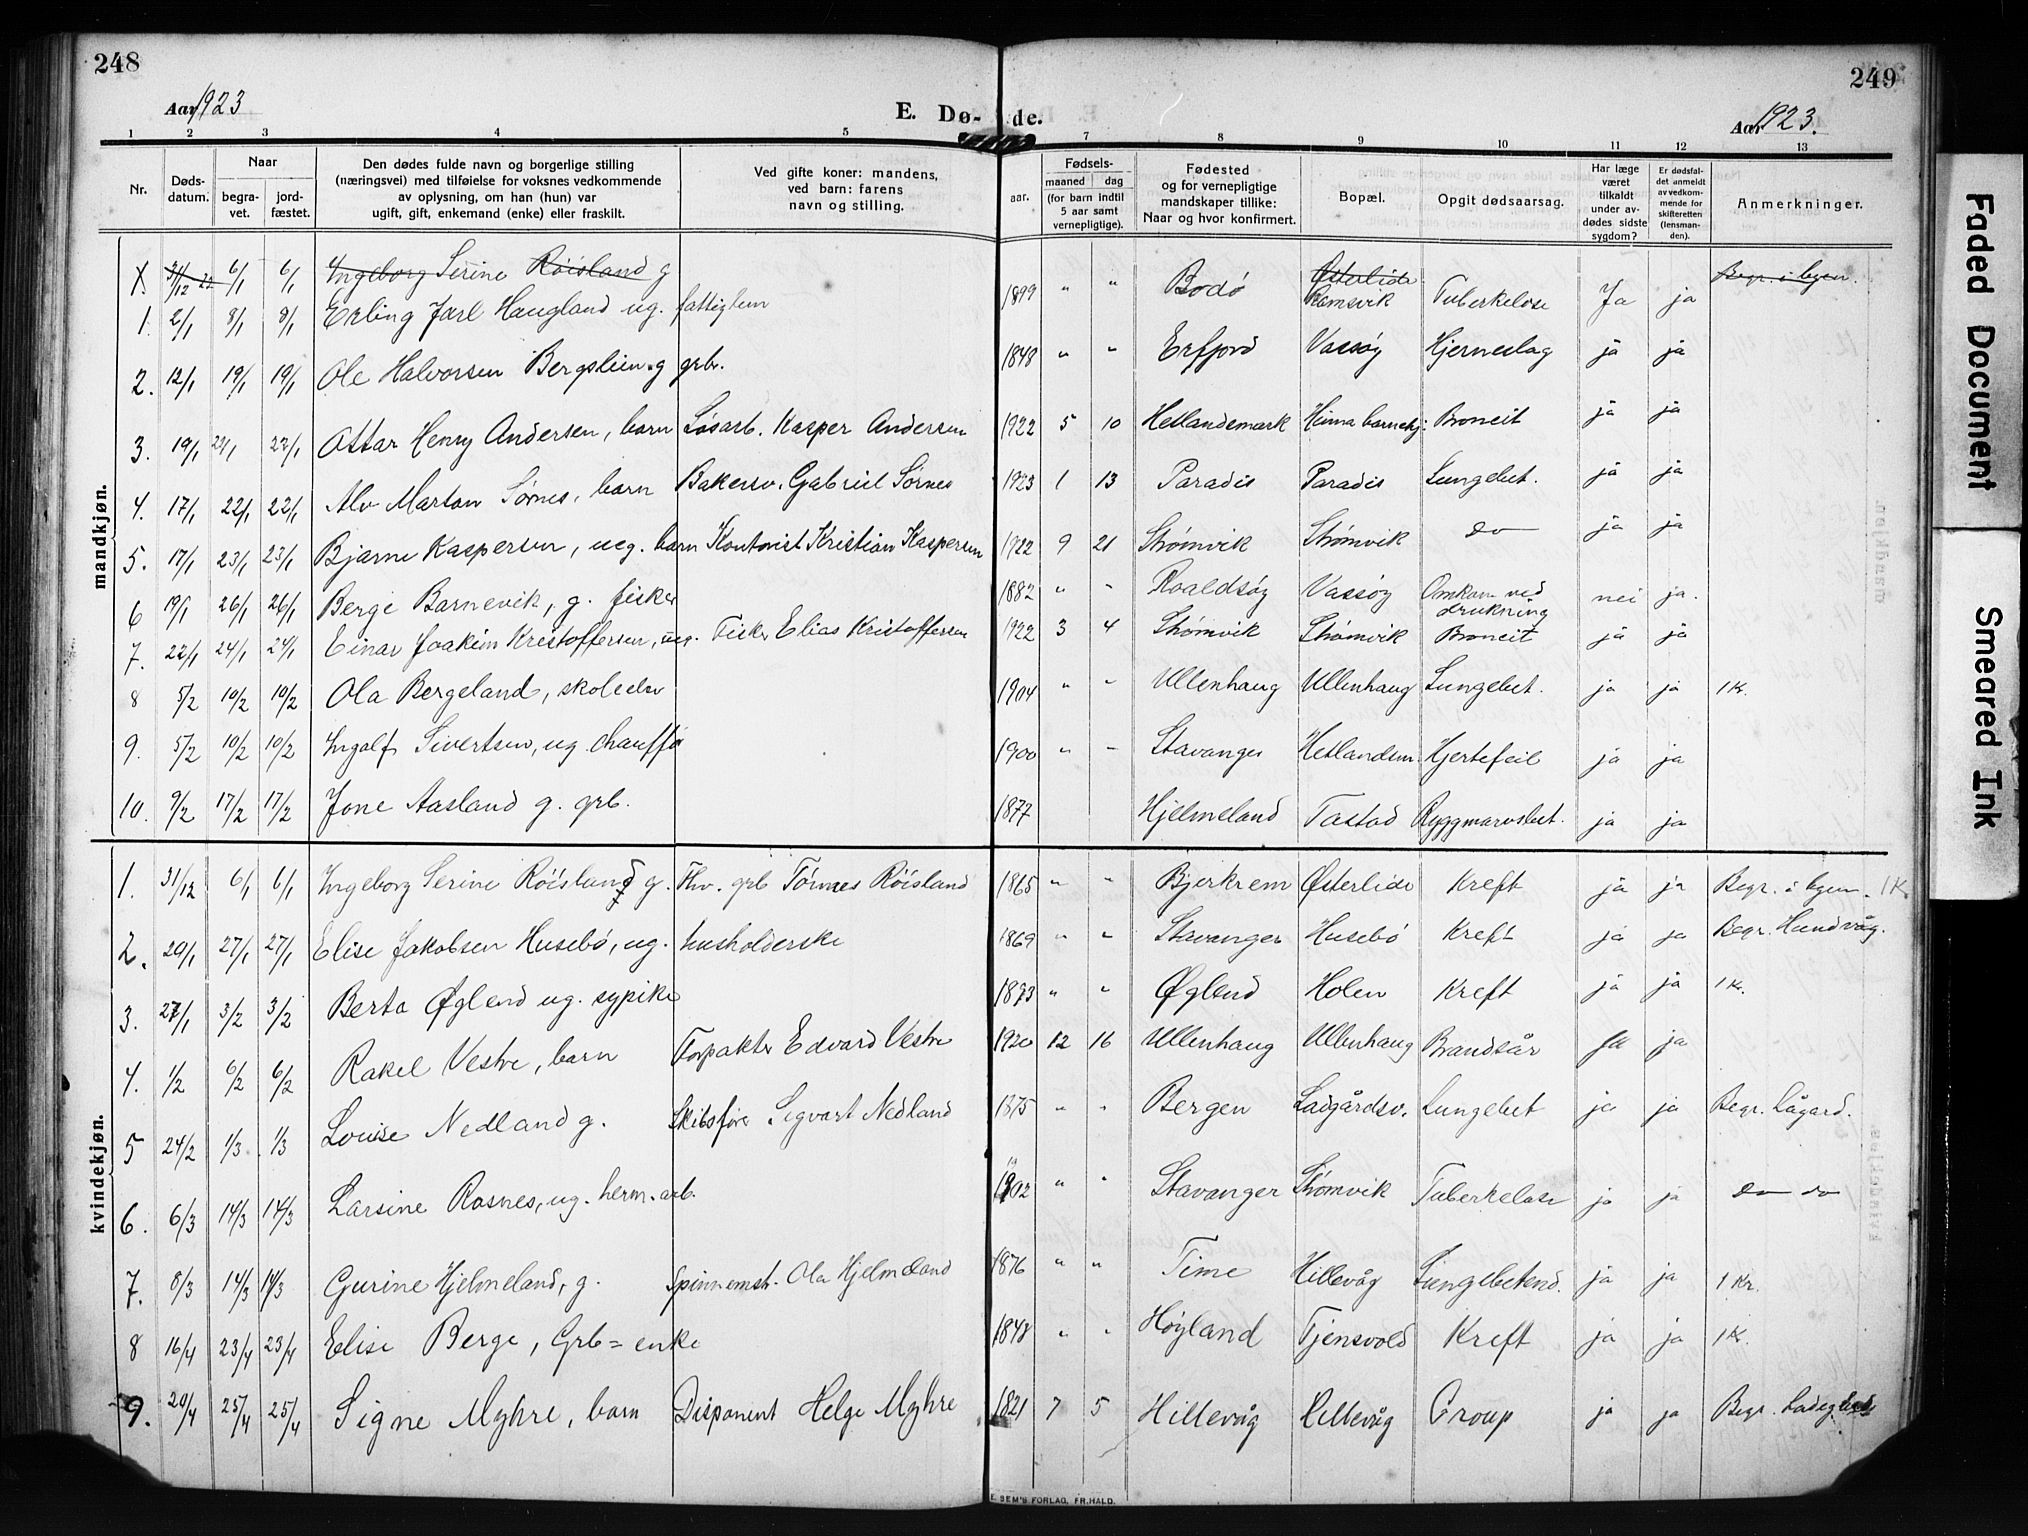 248
249
Aar 1923
E. Dø- de.
Aar 1923.
1 2 3 4 5 7 8 9 10 11 12 13
Nr.
Døds-
datum.
Naar
begra-
vet.
jord-
fæstet.
Den dødes fulde navn og borgerlige stilling
(næringsvei) med tilføielse for voksnes vedkommende
av oplysning, om han (hun) var
ugift, gift, enkemand (enke) eller fraskilt.
Ved gifte koner: mandens,
ved barn: farens
navn og stilling.
aar.
Fødsels-
maaned dag
(for barn indtil
5 aar samt
vernepligtige).
Fødested
og for vernepligtige
mandskaper tillike:
Naar og hvor konfirmert.
Bopæl.
Opgit dødsaarsag.
Har læge
været
tilkaldt
under av-
dødes sidste
sygdom?
Er dødsfal-
det anmeldt
av vedkom-
mende for
skifteretten
(lensman-
den).
Anmerkninger.
mandkjøn.
X. 31/12 22 6/1 6/1 Ingeborg Serine Röisland g Østerlide Begr. i byen.
1. 2/1 8/1 8/1 Erling Jarl Haugland ug. fattiglem 1899 " " Bodö Ramsvik Tuberkelose Ja ja
2. 12/1 19/1 19/1 Ole Halvorsen Bergslien g grb. 1848 " " Erfjord Vassøy Hjerneslag ja ja
3. 19/1 1 22/1 Ottar Henry Andersen, barn Løsarb. Kasper Andersen 1922 5 10 Hetlandsmark Hinna barnehj: Broncit ja ja
4. 17/1 22/1 22/1 Alv Marton Sørnes, barn Bakersv. Gabriel Sørnes 1923 1 13 Paradis Paradis Lungebet. ja ja
5. 17/1 23/1 23/1 Bjarne Kaspersen, ueg. barn Kontorist Kristian Kaspersen 1922 9 21 Strømvik Strømvik do ja ja
6 19/1 26/1 26/1 Berge Barnevik, g. fisker 1882 " " Roaldsøy Vassøy Omkom ved drukning nei ja.
7. 22/1 24/1 24/1 Einar Joakim Kristoffersen, ueg. Fisker Elias Kristoffersen 1922 3 4 Strømvik Strømvik Broncit ja ja
8 5/2 10/2 10/2 Ola Bergeland, skoleelev 1904 " " Ullenhaug Ullenhaug Lungebet. ja ja 1 Kr.
9. 5/2 10/2 10/2 Ingolf Sivertsen, ug. chauffør 1900 " " Stavanger Hetlandsm. Hjertefeil ja ja
10. 9/2 17/2 17/2 Jone Aasland g. grb. 1877 Hjelmeland Tastad Ryggmarvsbet. ja ja
kvindekjøn.
1. 31/12 6/1 6/1 Ingeborg Serine Röisland g. Fhv. grb Törnes Röisland 1865 " " Bjerkrem Østerlide Kreft ja ja Begr. i byen. 1 Kr.
2. 20/1 27/1 27/1 Elise Jakobsen Husebö, ug. husholderske 1869 " " Stavanger Husebö Kreft ja ja Begr. Hundvåg.
3. 27/1 3/2 3/2 Berta Øglend ug. sypike 1873 " " Øglend Holen Kreft ja ja 1 Kr.
4. 1/2 6/2 6/2 Rakel Vestre, barn Forpakter Edvard Vestre 1920 12 16 Ullenhaug Ullenhaug Brandsår ja ja
5 24/2 1/3 1/3 Louise Nedland g. Skibsfører Sigvart Nedland 1875 " " Bergen Ladgårdsv. Lungebet ja ja Begr. Lågard.
6. 6/3 14/3 14/3 Larsine Rosnes, ug. herm. arb. 1902 " " Stavanger Strømvik Tuberkelose ja ja do do
7. 8/3 14/3 14/3 Gurine Hjelmeland, g. Spinnemst. Ola Hjelmeland 1876 " " Time Hillevåg Lungebetend. ja ja 1 Kr.
8 16/4 23/4 23/4 Elise Berge, Grb = enke 1848 " " Høyland Tjensvold Kreft ja ja 1 Kr.
9. 20/4 25/4 25/4 Signe Myhre, barn Disponent Helge Myhre 1821 7 5 Hillevåg Hillevåg Croup ja ja Begr.
E. SEM'S FORLAG, FR.HALD.
Faded Document
Smeared Ink